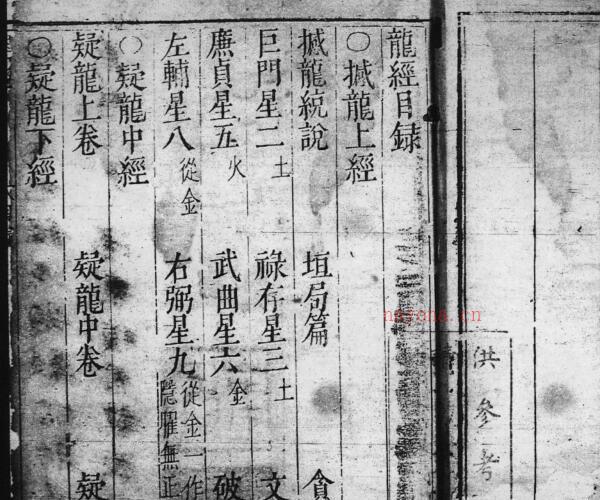 龍經目録
○撼龍上經
撼龍統說 垣局篇 貪
巨門星二土 祿存星三土 文
廉貞星五火 武曲星六金 破
左輔星八從金 右弼星九從金一作隱曜無正
○疑龍中經
疑龍上卷 疑龍中卷 疑
○疑龍下經
洪參考
najona.cn